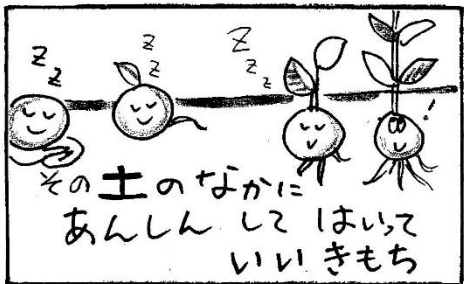 z z
z z
z z z
!
その土のなかに
あんしん して はいって
いい きもち